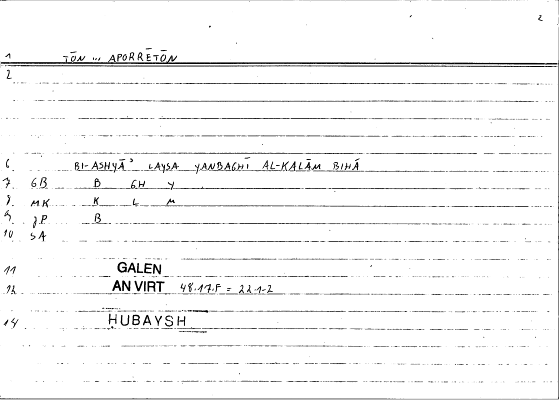 2
1 TŌN ... APORRĒTŌN
2
6 BI-ASHYĀʾ LAYSA YANBAGHĪ AL-KALĀM BIHĀ
7. GB B GH Y
8 MK K L M
9. JP B
10 SA
11 GALEN
12 AN VIRT 48.17.F = 22.1-2
14 HUBAYSH